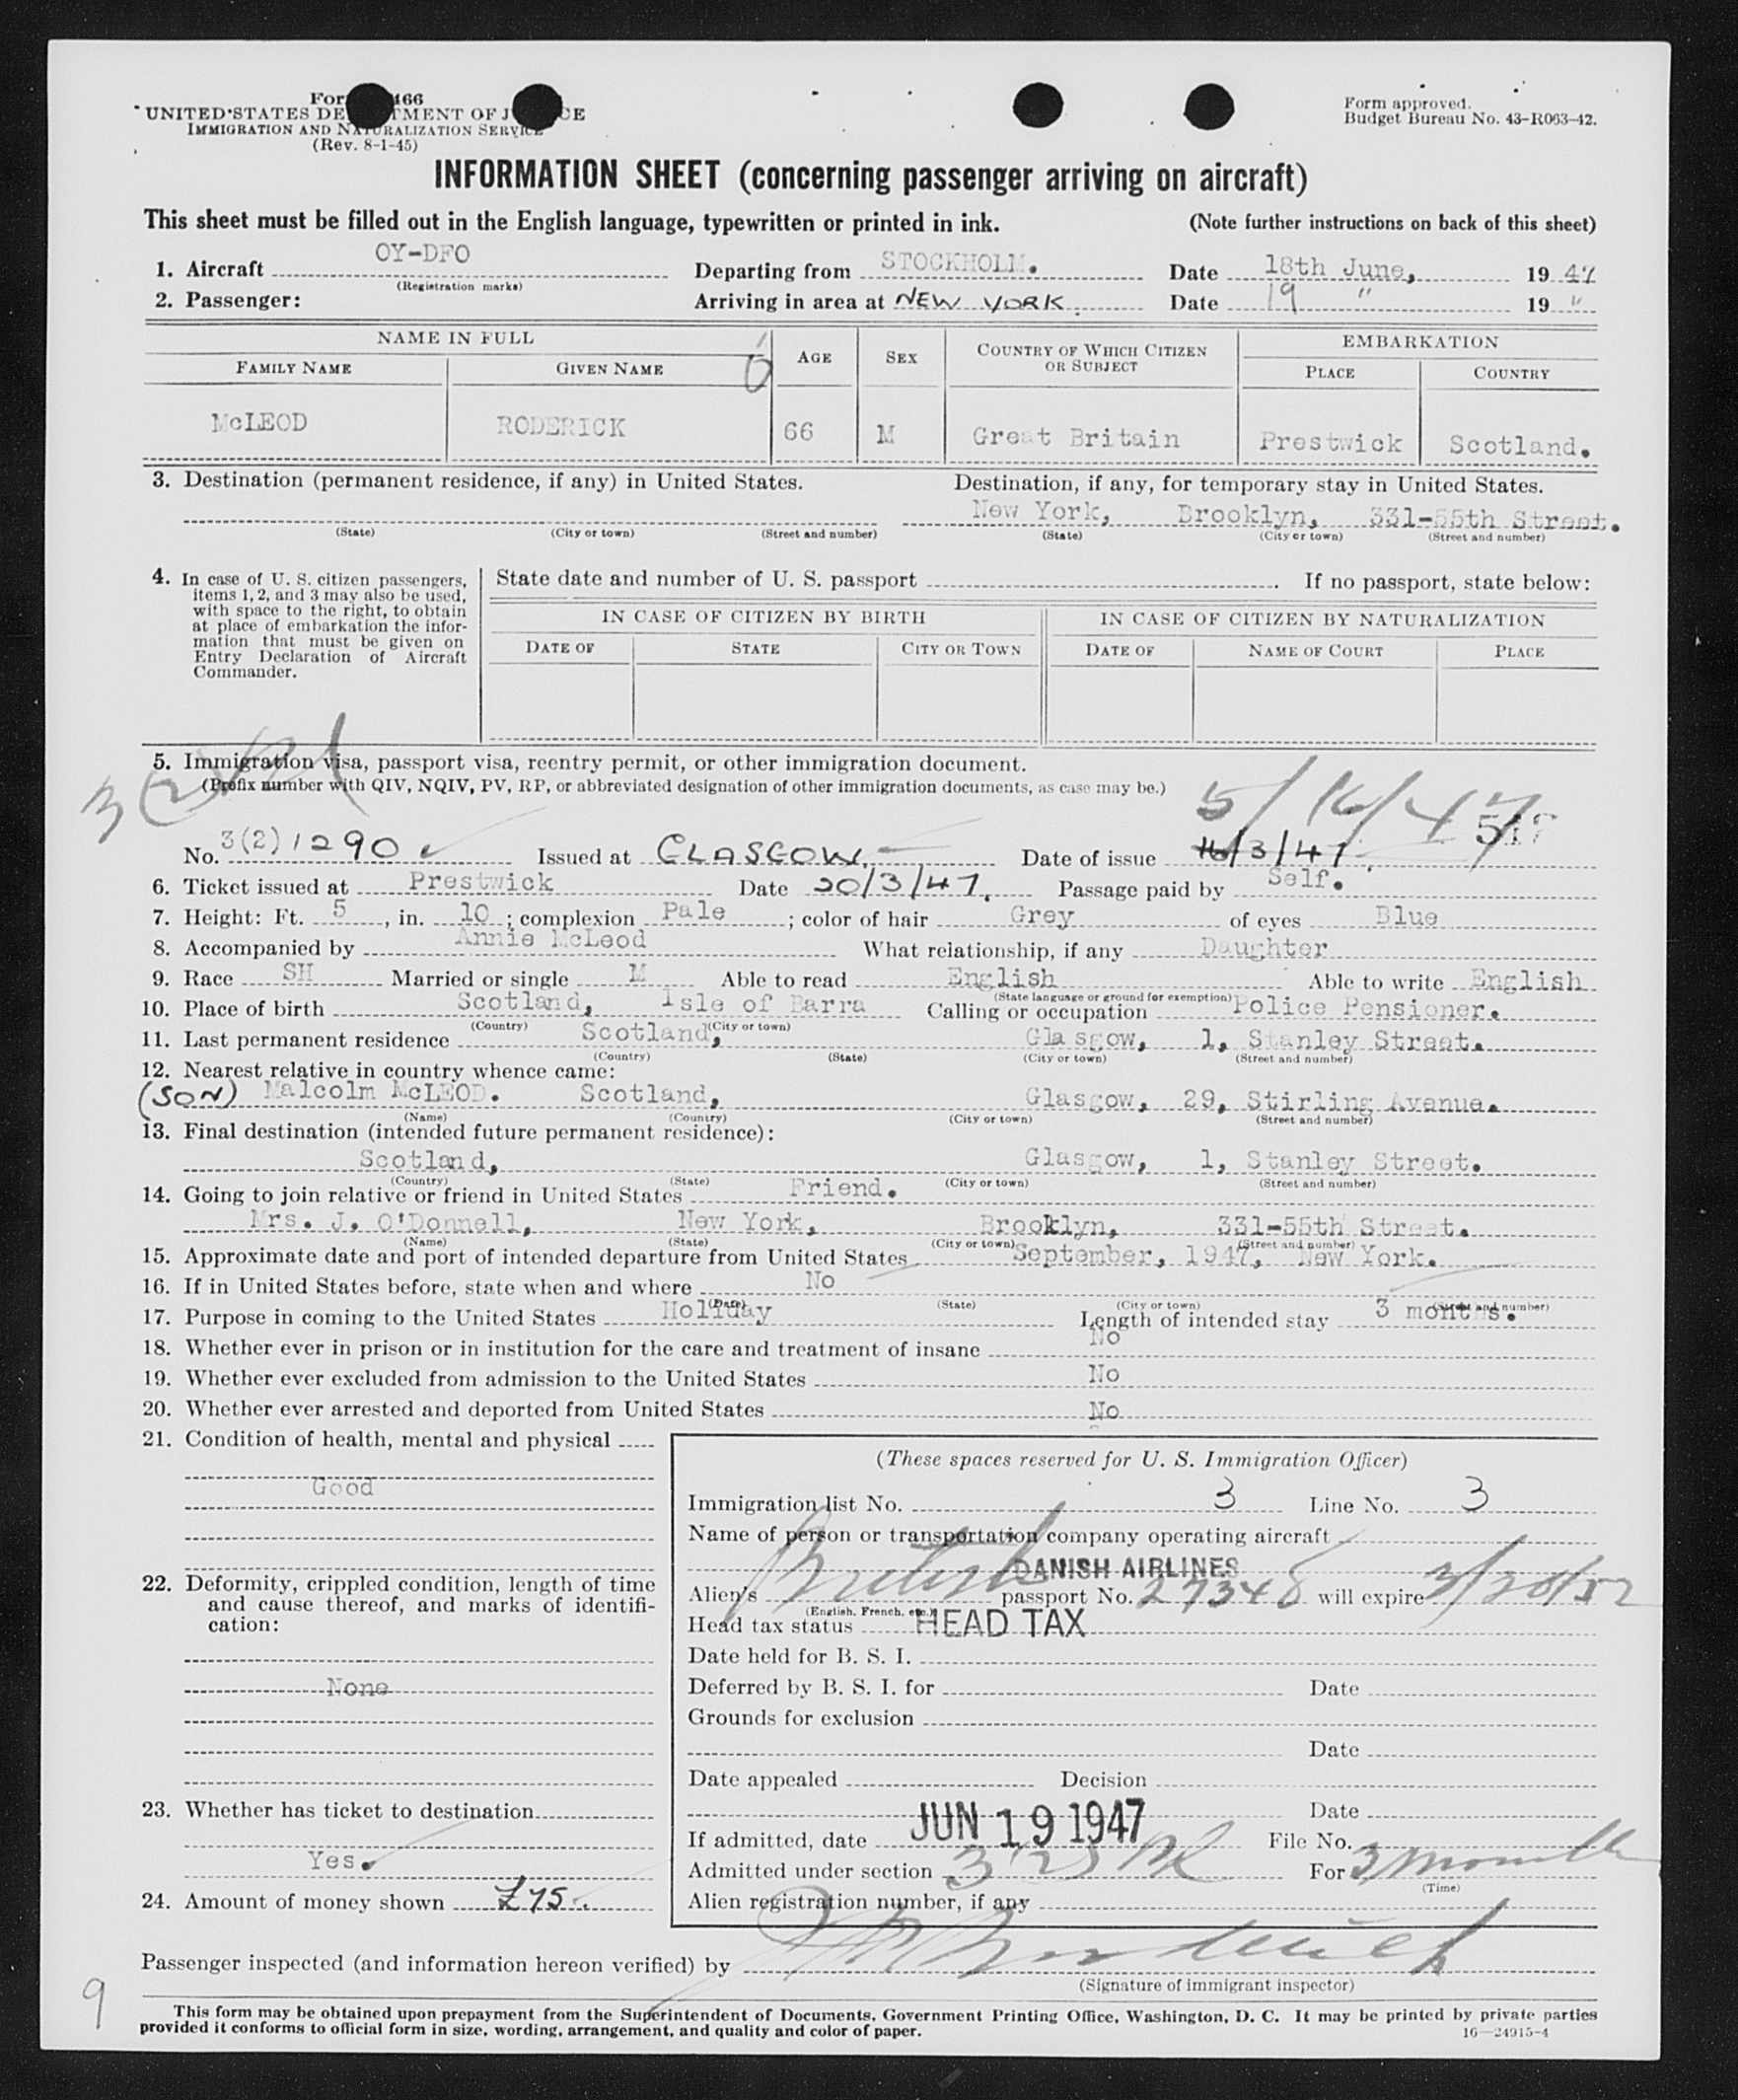 Form 466
UNITED STATES DEPARTMENT OF JUSTICE
IMMIGRATION AND NATURALIZATION SERVICE
(Rev. 8-1-45)
Form approved.
Budget Bureau No. 43-R063-42.
INFORMATION SHEET (concerning passenger arriving on aircraft)
This sheet must be filled out in the English language, typewritten or printed in ink. (Note further instructions on back of this sheet)
1. Aircraft OY-DFO Departing from STOCKHOLM. Date 18th June, 1947
(Registration marks)
2. Passenger: Arriving in area at NEW YORK. Date 19 " 19 "
NAME IN FULL AGE SEX COUNTRY OF WHICH CITIZEN OR SUBJECT EMBARKATION
FAMILY NAME GIVEN NAME PLACE COUNTRY
McLEOD RODERICK 66 M Great Britain Prestwick Scotland.
3. Destination (permanent residence, if any) in United States. Destination, if any, for temporary stay in United States.
New York, Brooklyn, 331-55th Street.
(State) (City or town) (Street and number) (State) (City or town) (Street and number)
4. In case of U. S. citizen passengers, items 1, 2, and 3 may also be used, with space to the right, to obtain at place of embarkation the information that must be given on Entry Declaration of Aircraft Commander.
State date and number of U. S. passport . If no passport, state below:
IN CASE OF CITIZEN BY BIRTH IN CASE OF CITIZEN BY NATURALIZATION
DATE OF STATE CITY OR TOWN DATE OF NAME OF COURT PLACE
5. Immigration visa, passport visa, reentry permit, or other immigration document.
(Prefix number with QIV, NQIV, PV, RP, or abbreviated designation of other immigration documents, as case may be.)
3(2)
5/16/47
No. 3(2)1290 Issued at GLASGOW. Date of issue 16/3/47.
6. Ticket issued at Prestwick Date 20/3/47. Passage paid by Self.
7. Height: Ft. 5, in. 10; complexion Pale; color of hair Grey of eyes Blue
8. Accompanied by Annie McLeod What relationship, if any Daughter
9. Race SH Married or single M Able to read English Able to write English
(State language or ground for exemption)
10. Place of birth Scotland, Isle of Barra Calling or occupation Police Pensioner.
(Country) (City or town)
11. Last permanent residence Scotland, Glasgow, 1, Stanley Street.
(Country) (State) (City or town) (Street and number)
12. Nearest relative in country whence came:
(SON) Malcolm McLEOD. Scotland, Glasgow, 29, Stirling Avenue.
(Name) (Country) (City or town) (Street and number)
13. Final destination (intended future permanent residence):
Scotland, Glasgow, 1, Stanley Street.
(Country) (State) (City or town) (Street and number)
14. Going to join relative or friend in United States Friend.
Mrs. J. O'Donnell, New York, Brooklyn, 331-55th Street.
(Name) (State) (City or town) (Street and number)
15. Approximate date and port of intended departure from United States September, 1947, New York.
16. If in United States before, state when and where No
(Date) (State) (City or town) (Street and number)
17. Purpose in coming to the United States Holiday Length of intended stay 3 months.
18. Whether ever in prison or in institution for the care and treatment of insane No
19. Whether ever excluded from admission to the United States No
20. Whether ever arrested and deported from United States No
21. Condition of health, mental and physical
Good
22. Deformity, crippled condition, length of time and cause thereof, and marks of identification:
None
23. Whether has ticket to destination
Yes.
24. Amount of money shown £75.
(These spaces reserved for U. S. Immigration Officer)
Immigration list No. 3 Line No. 3
Name of person or transportation company operating aircraft
DANISH AIRLINES
Alien's British passport No. 27348 will expire 3/20/52
(English, French, etc.)
Head tax status HEAD TAX
Date held for B. S. I.
Deferred by B. S. I. for Date
Grounds for exclusion
Date
Date appealed Decision
Date
If admitted, date JUN 19 1947 File No.
Admitted under section 3(2) For 3 months
(Time)
Alien registration number, if any
Passenger inspected (and information hereon verified) by
(Signature of immigrant inspector)
9
This form may be obtained upon prepayment from the Superintendent of Documents, Government Printing Office, Washington, D. C. It may be printed by private parties
provided it conforms to official form in size, wording, arrangement, and quality and color of paper. 16—24915-4